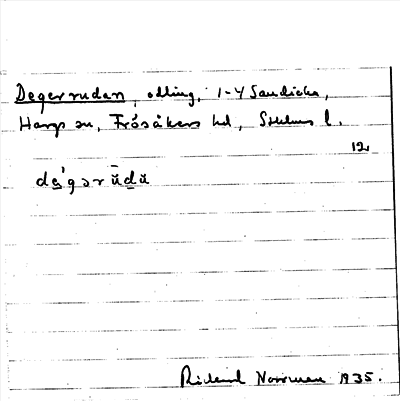 Degerrudan, odling, 1-4 Sandika,
Hargs sn, Frösåkers hd, Sthlms l.
12
de̱'gərūdä
Rickard Norrman 1935.